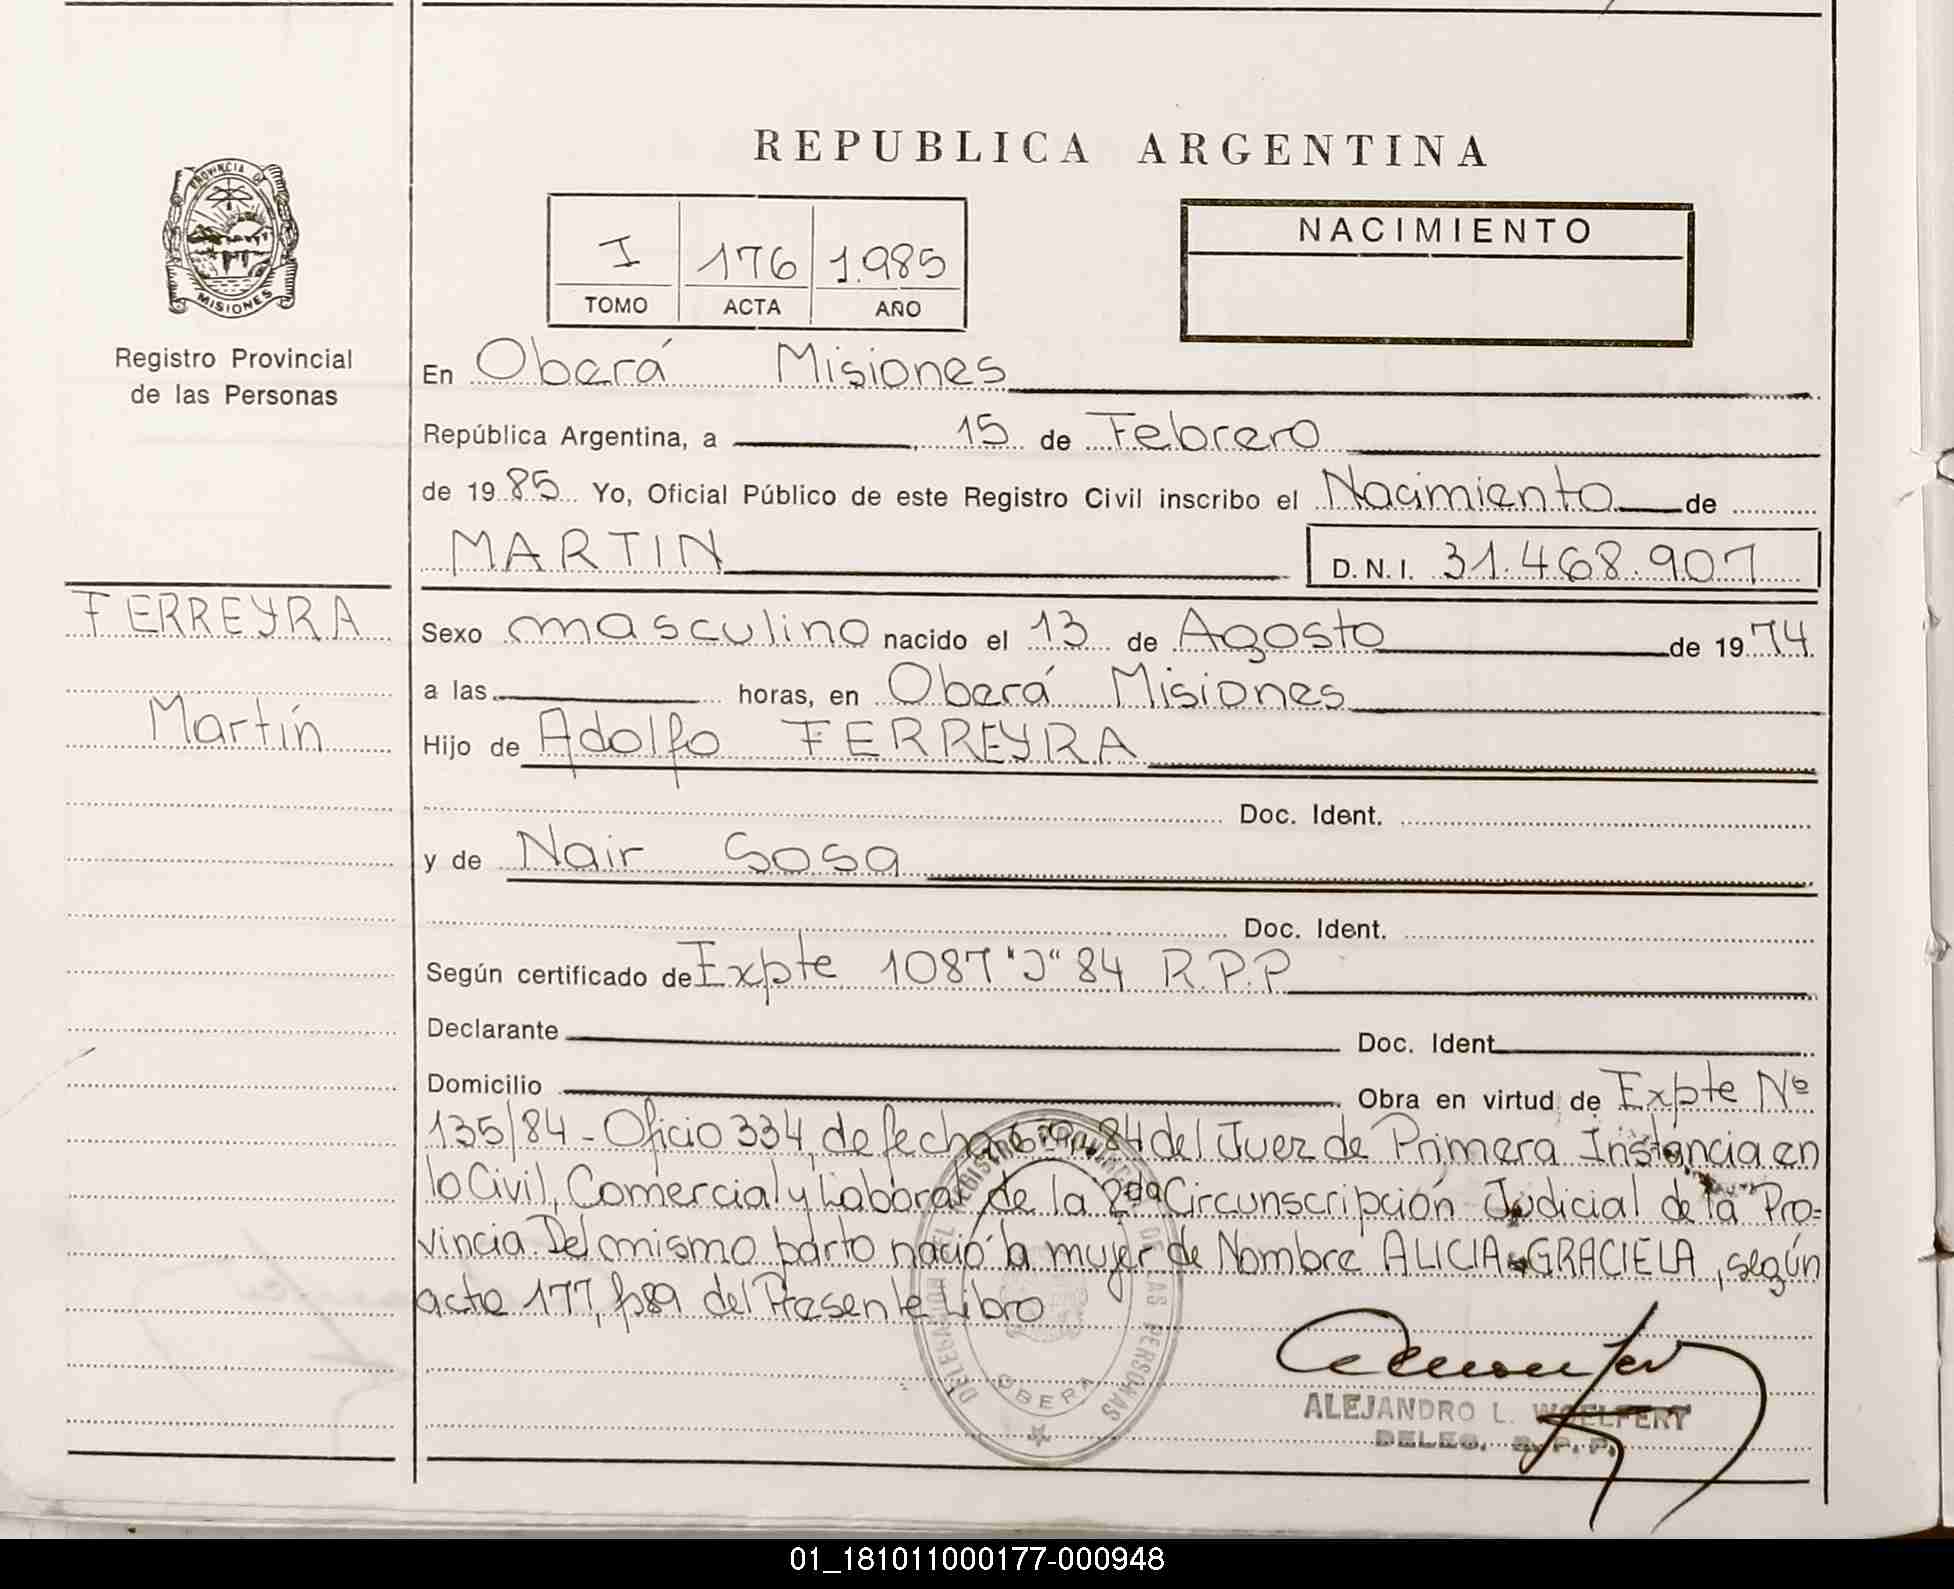 REPUBLICA ARGENTINA
PROVINCIA DE
MISIONES
Registro Provincial
de las Personas
I 176 1.985
TOMO ACTA AÑO
NACIMIENTO
En Oberá Misiones
República Argentina, a 15 de Febrero
de 1985 Yo, Oficial Público de este Registro Civil inscribo el Nacimiento de
MARTIN D.N.I. 31.468.907
FERREYRA
Martín
Sexo masculino nacido el 13 de Agosto de 1974
a las horas, en Oberá Misiones
Hijo de Adolfo FERREYRA
Doc. Ident.
y de Nair Sosa
Doc. Ident.
Según certificado de Expte 1087 "J" 84 R.P.P
Declarante Doc. Ident
Domicilio Obra en virtud de Expte Nº
135/84 - Oficio 334, de fecha 84 del Juez de Primera Instancia en
lo Civil, Comercial y Laboral de la 2da Circunscripción Judicial de la Pro=
vincia. Del mismo parto nació la mujer de Nombre ALICIA GRACIELA, según
acta 177, fº89 del Presente Libro
DELEGACION DEL REGISTRO PROVINCIAL DE LAS PERSONAS
OBERA
ALEJANDRO L. WOELFERT
DELEG. R. P. P.
01_181011000177-000948